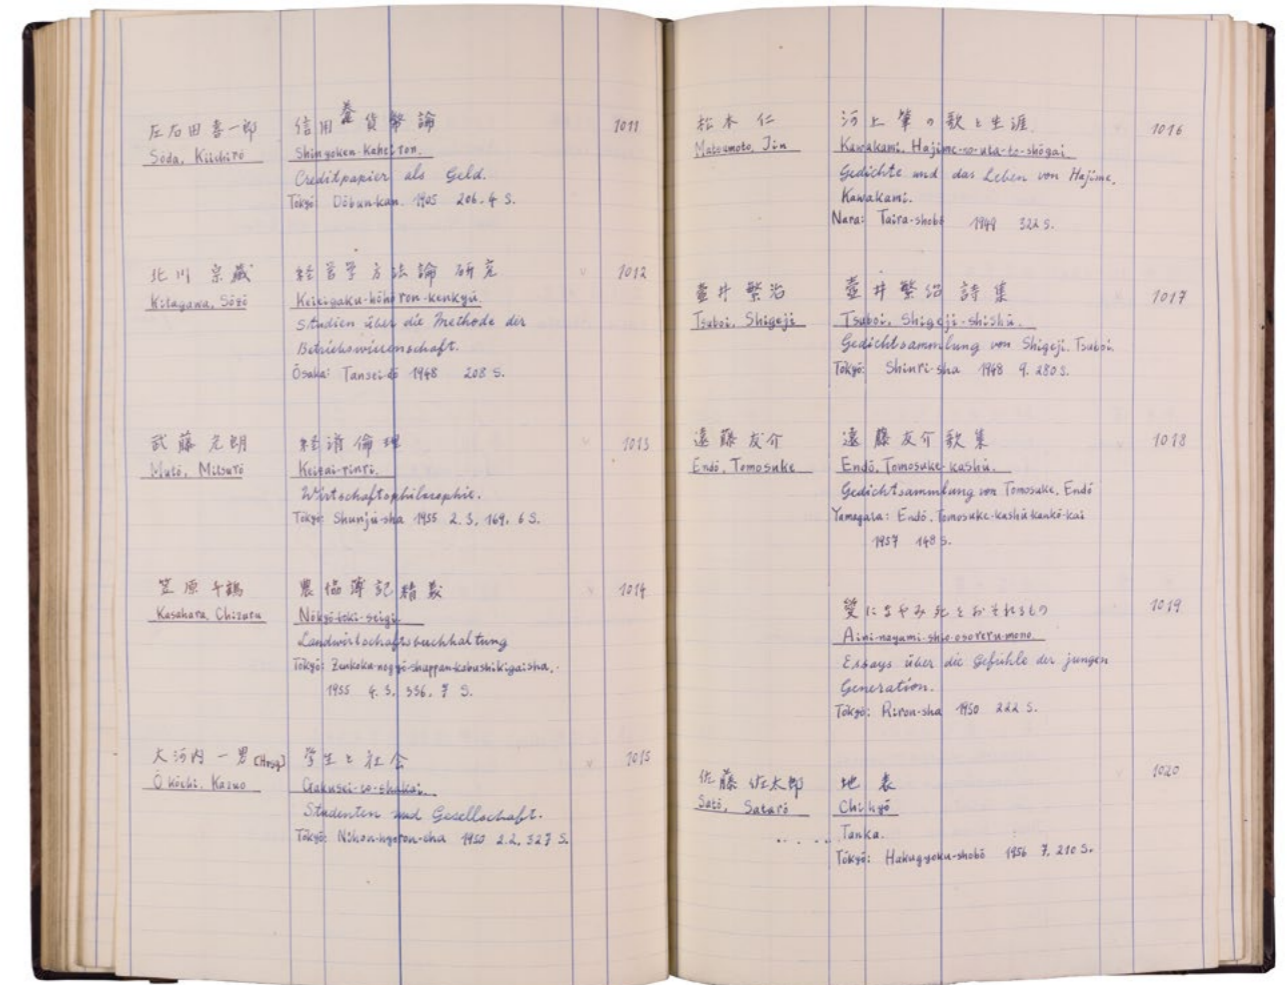 左右田喜一郎 信用券貨幣論 1011
Sōda, Kiichirō Shinyoken-Kaheiron.
Creditpapier als Geld.
Tōkyō: Dōbun-kan. 1905 206. 4 S.
北川 宗蔵 経営学方法論研究 1012
Kitagawa, Sōzō Keieigaku-hōhōron-kenkyū.
Studien über die Methode der
Betriebswissenschaft.
Ōsaka: Tansei-dō 1948 208 S.
武藤 光朗 経済倫理 1013
Mutō, Mitsurō Keizai-rinri.
Wirtschaftsphilosophie.
Tōkyō: Shunjū-sha 1955 2. 3. 169. 6 S.
笠原千鶴 農協簿記精義 1014
Kasahara, Chizuru Nōkyō-boki-seigi
Landwirtschaftsbuchhaltung
Tōkyō: Zenkoku-nogyō-shuppan-kabushikigaisha.
1955 4. 3. 356. 7 S.
大河内 一男 [Hrsg] 学生と社会 1015
Ōkōchi, Kazuo Gakusei-to-shakai.
Studenten und Gesellschaft.
Tōkyō: Nihon-hyōron-sha 1950 2.2. 327 S.
松本 仁 河上肇の歌と生涯. 1016
Matsumoto, Jin Kawakami, Hajime-no-uta-to-shōgai
Gedichte und das Leben von Hajime,
Kawakami.
Nara: Taira-shobō 1949 322 S.
壺井 繁治 壺井繁治詩集 1017
Tsuboi, Shigeji Tsuboi, Shigeji-shishū.
Gedichtsammlung von Shigeji. Tsuboi.
Tōkyō: Shinri-sha 1948 9. 280 S.
遠藤友介 遠藤友介歌集 1018
Endō, Tomosuke Endō, Tomosuke-kashū.
Gedichtsammlung von Tomosuke, Endō
Yamagata: Endō, Tomosuke-kashū-kankō-kai
1957 148 S.
愛になやみ死をおそれるもの 1019
Aini-nayami-shio-osoreru-mono
Essays über die Gefühle der jungen
Generation.
Tōkyō: Riron-sha 1950 222 S.
佐藤佐太郎 地表 1020
Satō, Satarō Chihyō
Tanka.
Tōkyō: Hakugyoku-shobō 1956 7. 210 S.